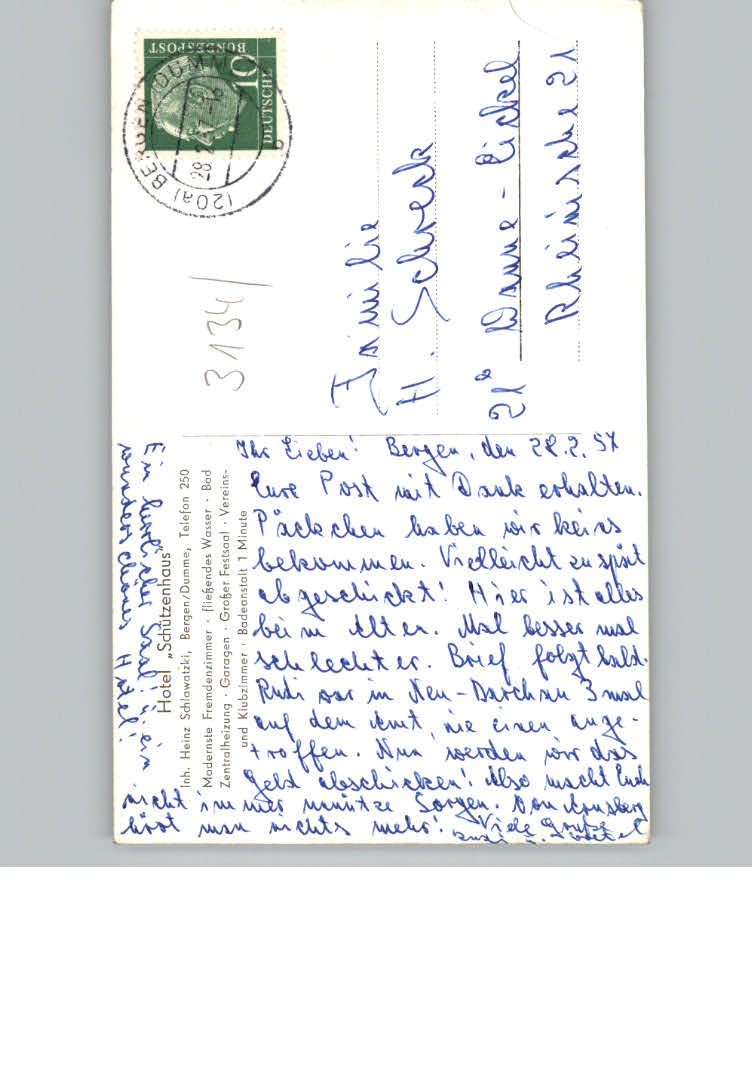 Ein herrlicher Saal! u. ein
wunderschönes Hotel!
Hotel „Schützenhaus“
Inh. Heinz Schlawatzki, Bergen/Dumme, Telefon 250
Modernste Fremdenzimmer · fließendes Wasser · Bad
Zentralheizung · Garagen · Großer Festsaal · Vereins-
und Klubzimmer · Badeanstalt 1 Minute
Ihr Lieben! Bergen, den 28.2.57
Eure Post mit Dank erhalten.
Päckchen haben wir keins
bekommen. Vielleicht zu spät
abgeschickt! Hier ist alles
beim Alten. Mal besser mal
schlechter. Brief folgt bald.
Rudi war in Neu-Darchau 3 mal
auf dem Amt, nie einen ange-
troffen. Nun werden wir das
Geld abschicken! Also macht Euch
nicht immer unnütze Sorgen. Von Arnsberg
hört man nichts mehr! Viele Grüße
Rudi u.
DEUTSCHE
BUNDESPOST
10
(20a) BERGEN (DUMME)
28.2.57
b
3134/
Familie
H. Schreck
21a Wanne-Eickel
Rheinische 21